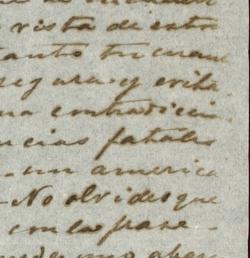 vista de esto
tanto tu cuan
segura y evita
na contradicci
ncias fatales
un america
No olvides que
con la pare